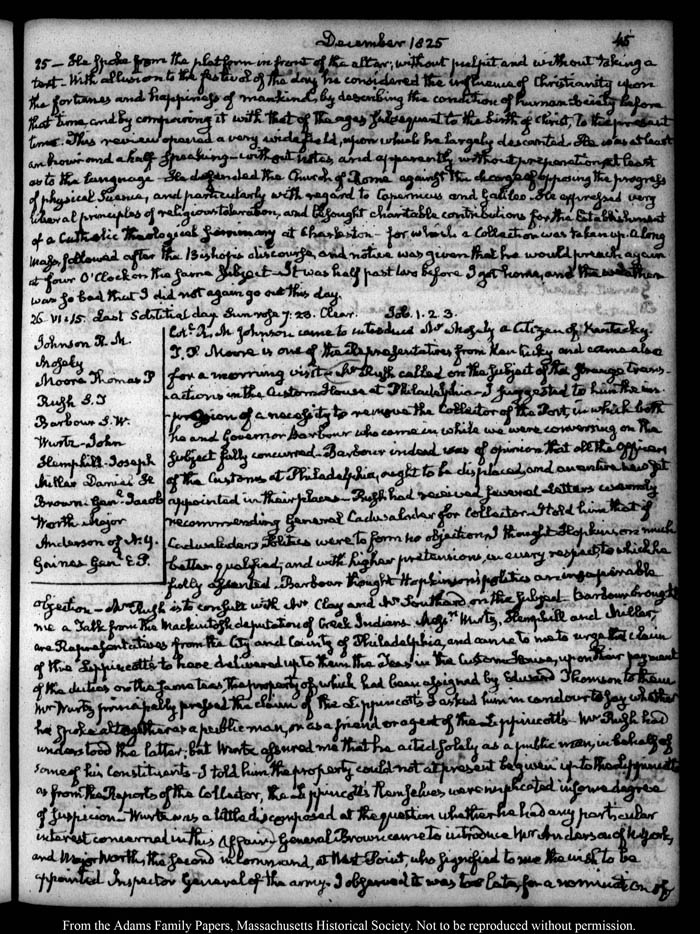 December 1825 45
25 — He spoke from the platform in front of the altar, without pulpit and without taking a
text — With allusion to the festival of the day, he considered the influence of Christianity upon
the fortunes and happiness of mankind, by describing the condition of human Society before
that time, and by comparing it with that of the ages subsequent to the birth of Christ, to the present
time. This review opened a very wide field, upon which he largely descanted. He was at least
an hour and a half speaking — without notes, and apparently without preparation at least
as to the language — He defended the Church of Rome against the charge of opposing the progress
of physical Science, and particularly with regard to Copernicus and Galileo. He expressed very
liberal principles of religious toleration, and besought charitable contributions for the Establishment
of a Catholic Theological Seminary at Charleston — for which a Collection was taken up. A long
Mass, followed after the Bishop's discourse, and notice was given that he would preach again
at four O'Clock on the same Subject — It was half past two before I got home, and the weather
was so bad that I did not again go out this day.
26. VI:15. Last Solstitial day. Sun rose 7:23. Clear. Job. 1. 2. 3.
Johnson R. M.
Mosely
Moore Thomas P
Rush
Barbour
Wurtz. John
Hemphill. Joseph
Miller Daniel H
Brown. Genl. Jacob
Worth. Major
Anderson of N.Y.
Gaines Genl. E. P.
Coll. R. M. Johnson came to introduce Mr Mosely a Citizen of Kentucky.
T. P. Moore is one of the Representatives from Kentucky and came also
for a morning visit — Mr Rush called on the subject of the strange trans-
actions in the Custom House at Philadelphia — I suggested to him the im-
pression of a necessity to remove the Collector of the Port, in which both
he and Governor Barbour who came in while we were conversing on the
subject fully concurred — Barbour indeed was of opinion that all the Officers
of the Customs at Philadelphia, ought to be displaced, and an entire new set
appointed in their places — Rush had received several Letters warmly
recommending General Cadwalader for Collector — I told him that if
Cadwalader's Politics were to form no objection, I thought Hopkinson much
better qualified; and with higher pretensions, in every respect, to which he
fully assented. Barbour thought Hopkinson's politics an insuperable
objection — Mr Rush is to consult with Mr Clay and Mr Southard, on the subject. Barbour brought
me a Talk from the Mackintosh deputation of Creek Indians. Messrs. Wurtz, Hemphill and Miller,
are Representatives from the City and County of Philadelphia, and came to me to urge the claim
of the Lippincotts to have delivered up to them the Teas, in the Custom House, upon their payment
of the duties on the same teas the property of which had been assigned by Edward Thomson to them
Mr Wurtz principally pressed the claim of the Lippincotts. I asked him in candour to say whether
he spoke altogether as a public man, or as a friend or agent of the Lippincotts — Mr Rush had
understood the latter; but Wurtz assured me that he acted solely as a public man, in behalf of
some of his Constituents — I told him the property could not at present be given up to the Lippincotts
as from the Reports of the Collector, the Lippincotts themselves were implicated in some degree
of suspicion — Wurtz was a little discomposed at the question whether he had any particular
interest concerned in this Affair — General Brown came to introduce Mr Anderson of N. York,
and Major Worth, the second in command, at West Point, who signified to me the wish to be
appointed Inspector General of the army. I observed it was too late, for a nomination of
From the Adams Family Papers, Massachusetts Historical Society. Not to be reproduced without permission.